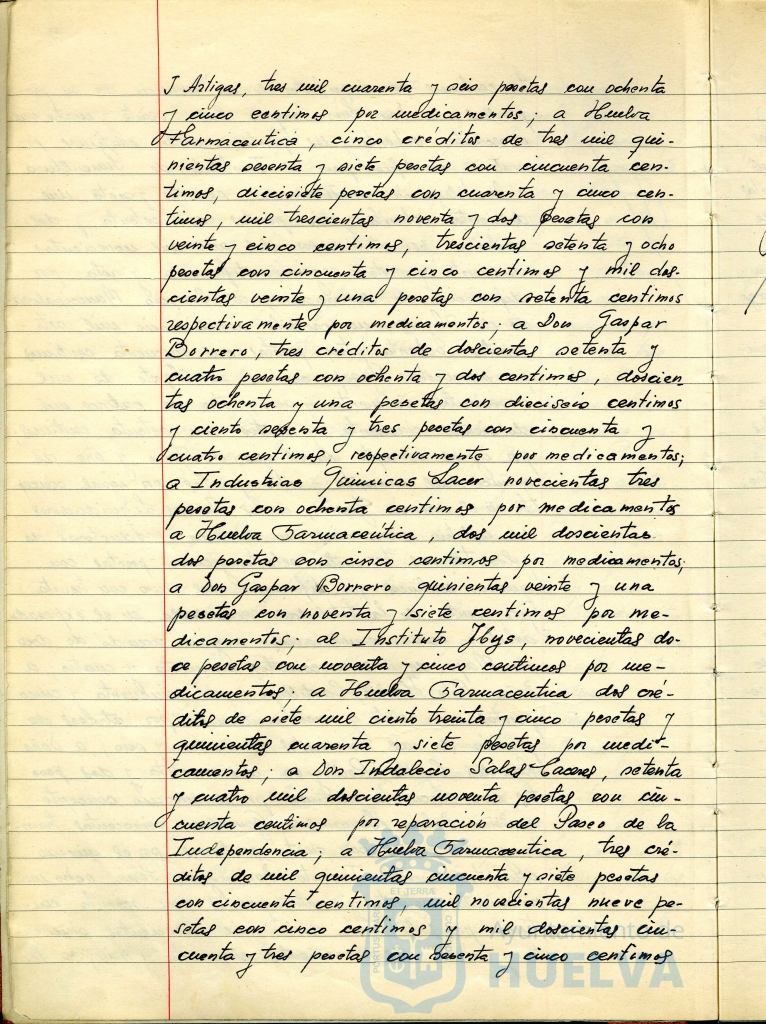 J Artigas, tres mil cuarenta y seis pesetas con ochenta
y cinco centimos por medicamentos; a Huelva
Farmaceutica, cinco créditos de tres mil qui-
nientas sesenta y siete pesetas con cincuenta cen-
timos, diecisiete pesetas con cuarenta y cinco cen-
timos, mil trescientas noventa y dos pesetas con
veinte y cinco centimos, trescientas setenta y ocho
pesetas con cincuenta y cinco centimos y mil dos-
cientas veinte y una pesetas con setenta centimos
respectivamente por medicamentos; a Don Gaspar
Borrero, tres créditos de doscientas setenta y
cuatro pesetas con ochenta y dos centimos, doscien-
tas ochenta y una pesetas con dieciseis centimos
y ciento sesenta y tres pesetas con cincuenta y
cuatro centimos, respectivamente por medicamentos;
a Industrias Quimicas Lacer novecientas tres
pesetas con ochenta centimos por medicamentos
a Huelva Farmaceutica, dos mil doscientas
dos pesetas con cinco centimos por medicamentos;
a Don Gaspar Borrero quinientas veinte y una
pesetas con noventa y siete centimos por me-
dicamentos; al Instituto Ibys, novecientas do-
ce pesetas con noventa y cinco centimos por me-
dicamentos; a Huelva Farmaceutica dos cré-
ditos de siete mil ciento treinta y cinco pesetas y
quinientas cuarenta y siete pesetas por medi-
camentos; a Don Indalecio Salas Caceres, setenta
y cuatro mil doscientas noventa pesetas con cin-
cuenta centimos por reparación del Paseo de la
Independencia; a Huelva Farmaceutica, tres cré-
ditos de mil quinientas cincuenta y siete pesetas
con cincuenta centimos, mil novecientas nueve pe-
setas con cinco centimos y mil doscientas cin-
cuenta y tres pesetas con sesenta y cinco centimos
Ayuntamiento de
HUELVA